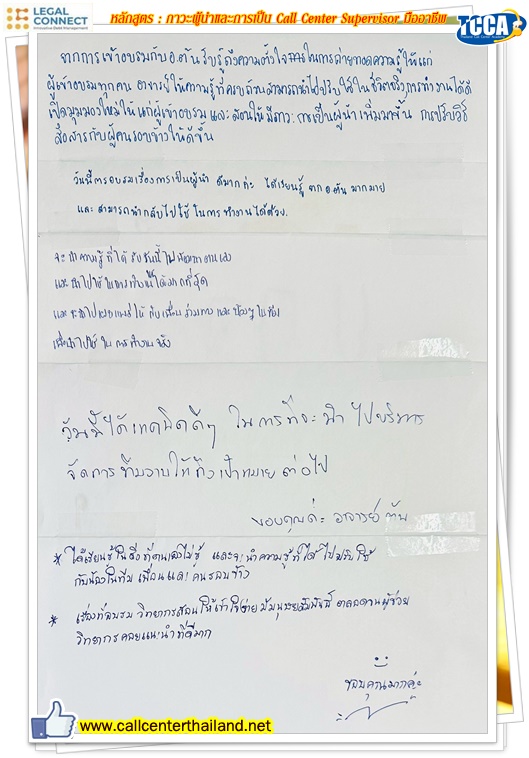 LEGAL
CONNECT
Innovative Debt Management
หลักสูตร : ภาวะผู้นำและการเป็น Call Center Supervisor มืออาชีพ
TCCA
Thailand Call Center Academy
จากการเข้าอบรมกับอ.ตั้นรับรู้ถึงความตั้งใจในการถ่ายทอดความรู้ให้แก่
ผู้เข้าอบรมทุกคน อาจารย์ให้ความรู้ที่ครบถ้วนสามารถนำไปปรับใช้ในชีวิตจริง,การทำงานได้ดี
เปิดมุมมองใหม่ให้แก่ผู้เข้าอบรม และสอนให้มีภาวะการเป็นผู้นำเพิ่มมากขึ้น การปรับวิธี
สื่อสารกับผู้คนรอบข้างให้ดีขึ้น
วันนี้การอบรมเรื่องการเป็นผู้นำ ดีมากค่ะ ได้เรียนรู้จากอ.ตั้นมากมาย
และสามารถนำกลับไปใช้ในการทำงานได้ด้วย.
จะนำความรู้ที่ได้รับวันนี้ไปพัฒนาตนเอง
และนำไปใช้ในการทำให้ได้มากที่สุด
และจะนำไปเผยแพร่ให้กับเพื่อนร่วมงานและน้องๆในทีม
เพื่อนำไปใช้ในการทำงานจริง
วันนี้ได้เทคนิคดีๆ ในการที่จะนำไปบริหาร
จัดการทีมงานให้ถึงเป้าหมายต่อไป
ขอบคุณค่ะ อาจารย์ตั้น
* ได้เรียนรู้ในสิ่งที่ตนเองไม่รู้ และจะนำความรู้ที่ได้ไปปรับใช้
กับน้องในทีม เพื่อนและคนรอบข้าง
* เรื่องที่อบรม วิทยากรสอนให้เข้าใจง่าย มีมนุษยสัมพันธ์ ตลอดจนผู้ช่วย
วิทยากรคอยแนะนำที่ดีมาก
ขอบคุณมากค่ะ
www.callcenterthailand.net